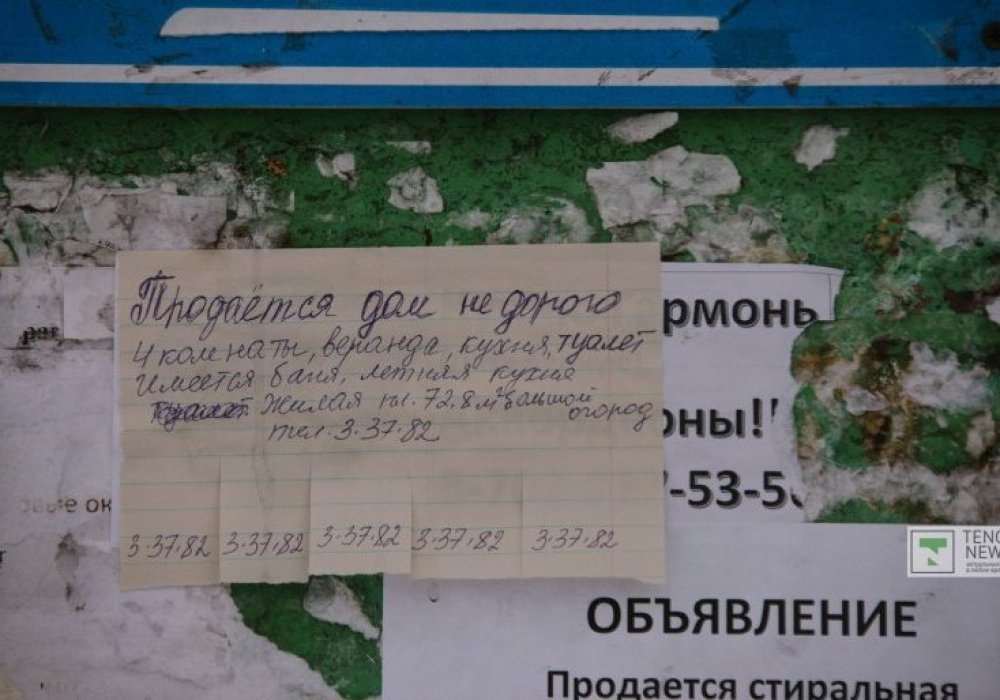 Продаётся дом не дорого
4 комнаты, веранда, кухня, туалет
имеется баня, летняя кухня
Жилая пл. 72.8 м² большой огород
тел. 3.37.82
3.37.82 3.37.82 3.37.82 3.37.82 3.37.82
рмонь
оны!!
-53-5
овые ок
ОБЪЯВЛЕНИЕ
Продается стиральная
TENG
NEW